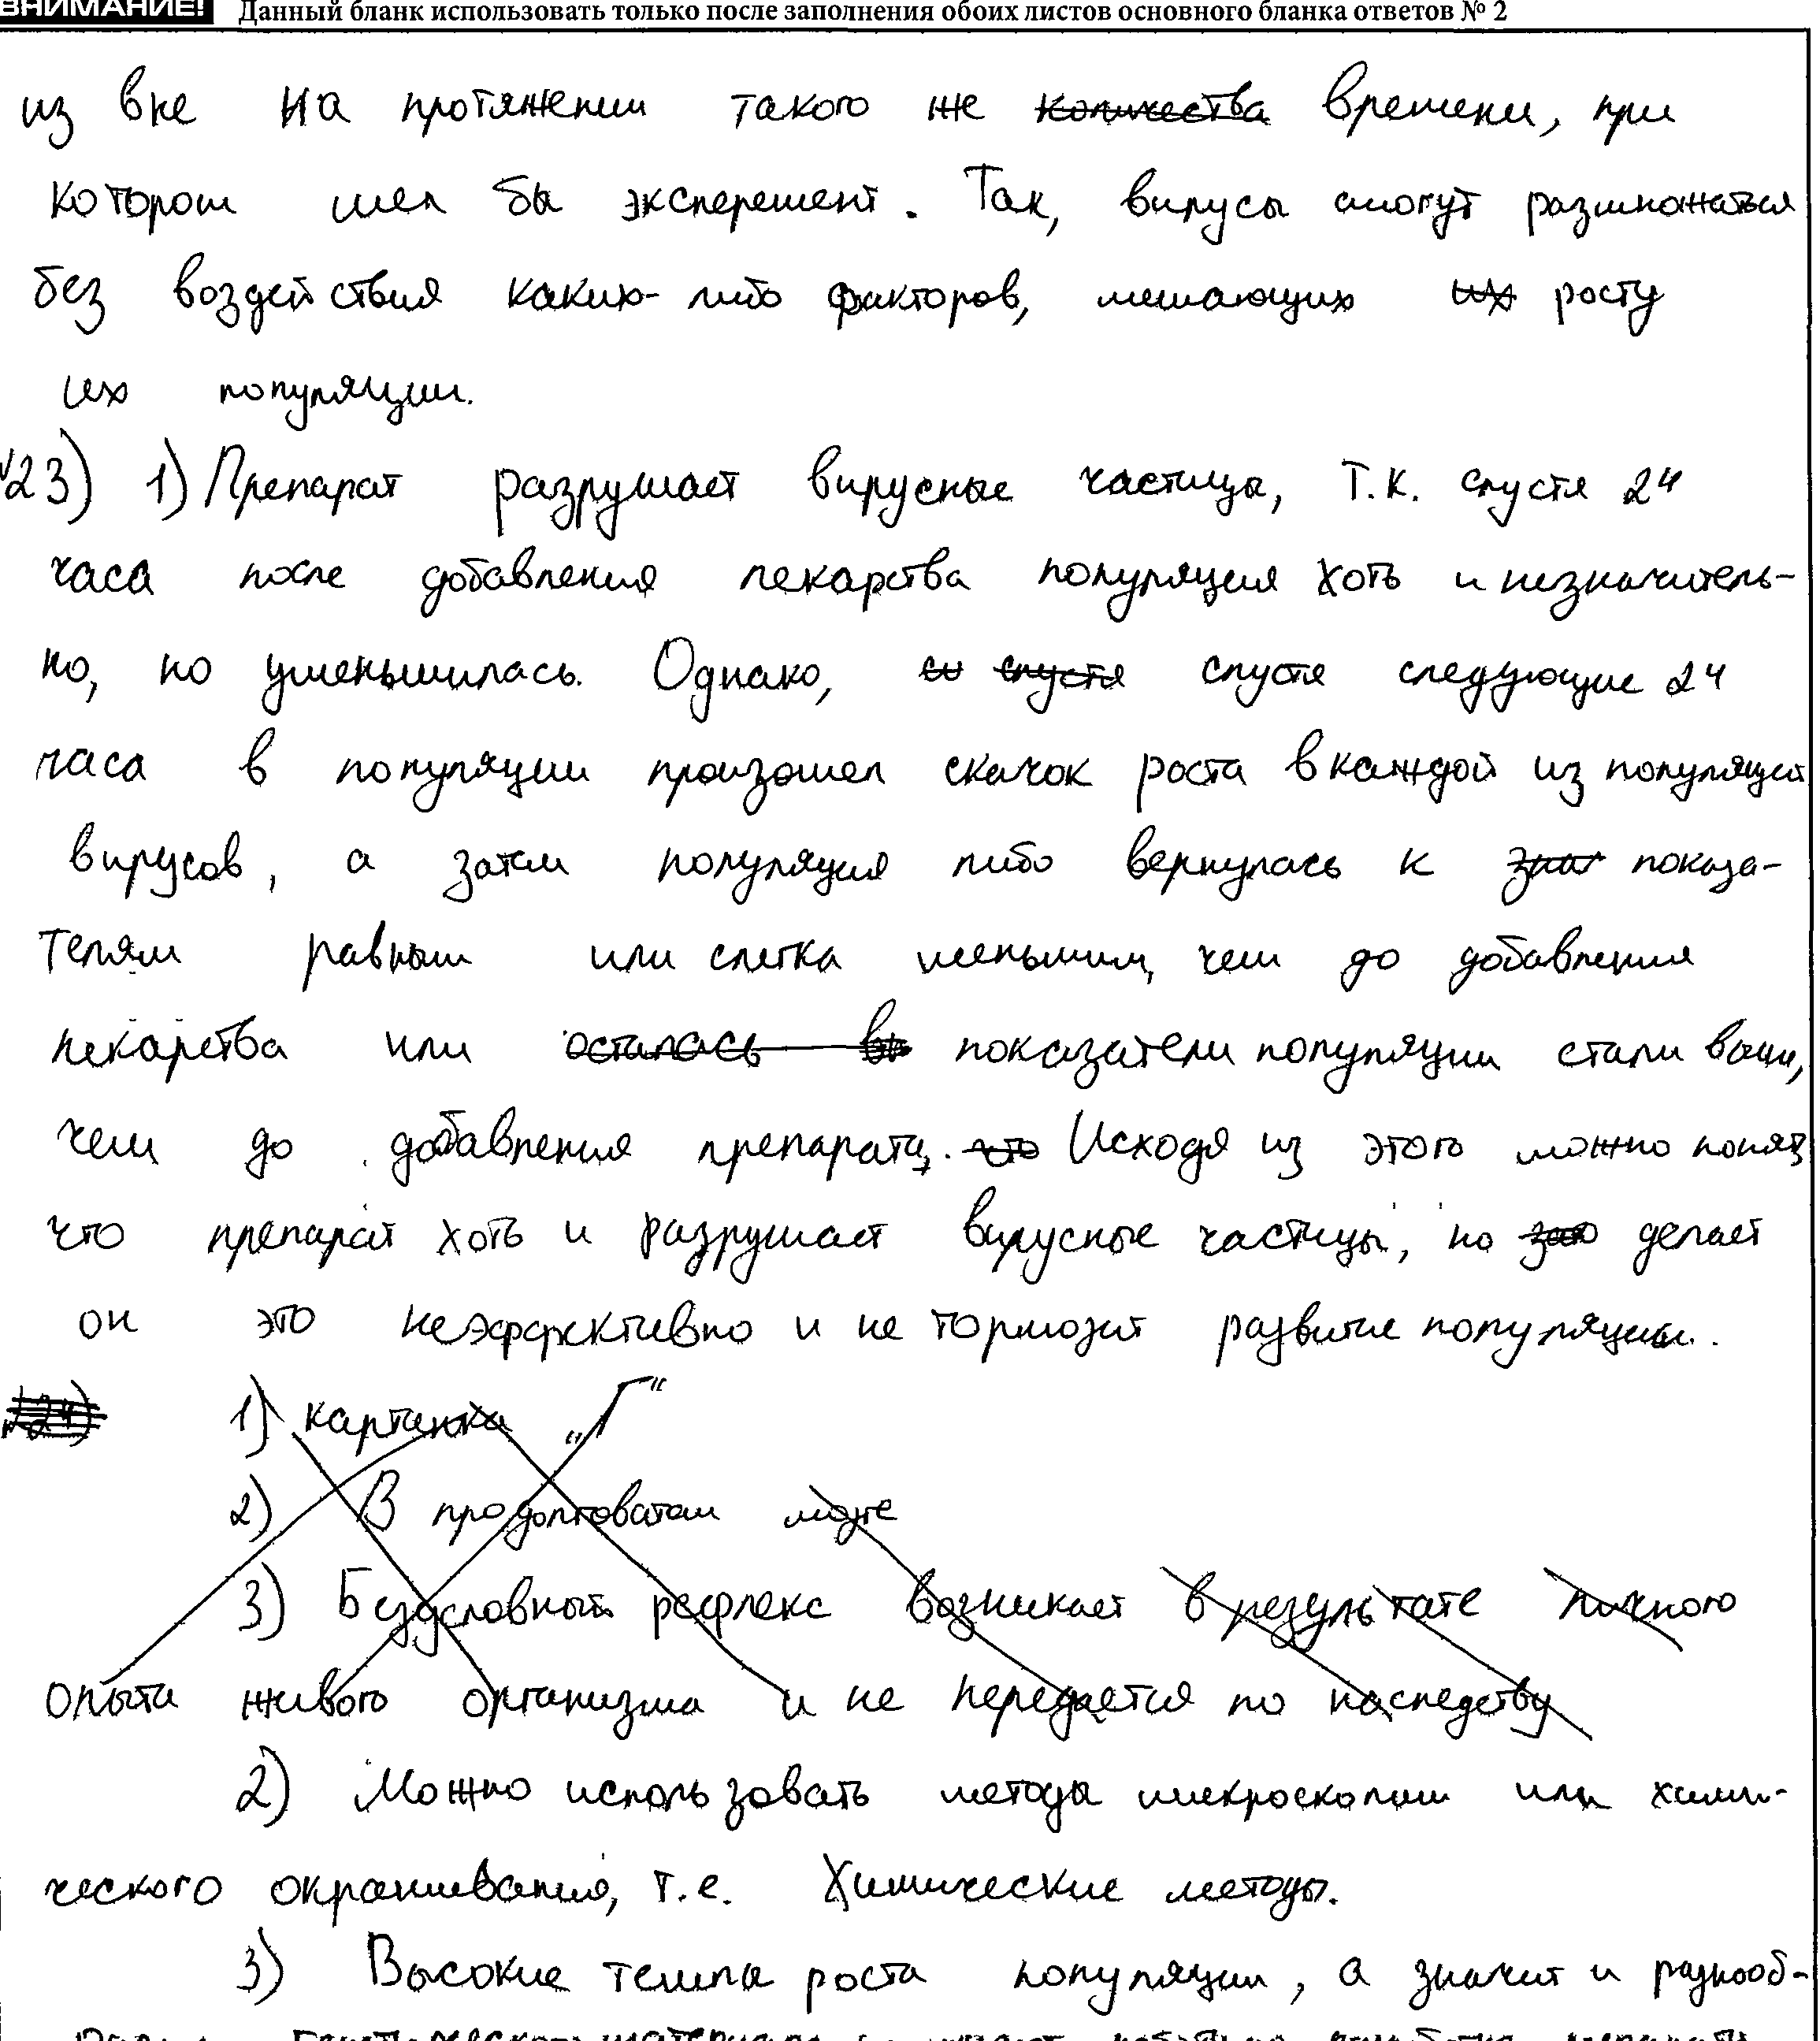 ВНИМАНИЕ! Данный бланк использовать только после заполнения обоих листов основного бланка ответов № 2
из вне на протяжении такого же количества времени, при
котором шел бы эксперемент. Так, вирусы смогут размножаться
без воздействия каких-либо факторов, мешающих их росту
их популяции.
№23) 1) Препарат разрушает вирусные частицы, т.к. спустя 24
часа после добавления лекарства популяция хоть и незначитель-
но, но уменьшилась. Однако, сп спустя спустя следующие 24
часа в популяции произошел скачок роста в каждой из популяций
вирусов, а затем популяция либо вернулась к показа-
телям равным или слегка меньшим, чем до добавления
лекарства или осталась вы показатели популяции стали выше,
чем до добавления препарата, что Исходя из этого можно понять
что препарат хоть и разрушает вирусные частицы, но делает
он это неэффективно и не тормозит развитие популяции.
№24) 1) картинка „Г“
2) В продолговатом мозге
3) Безусловный рефлекс возникает в результате личного
опыта живого организма и не передается по наследству
2) Можно использовать методы микроскопии или хими-
ческого окрашивания, т.е. Химические методы.
3) Высокие темпы роста популяции, а значит и разнооб-